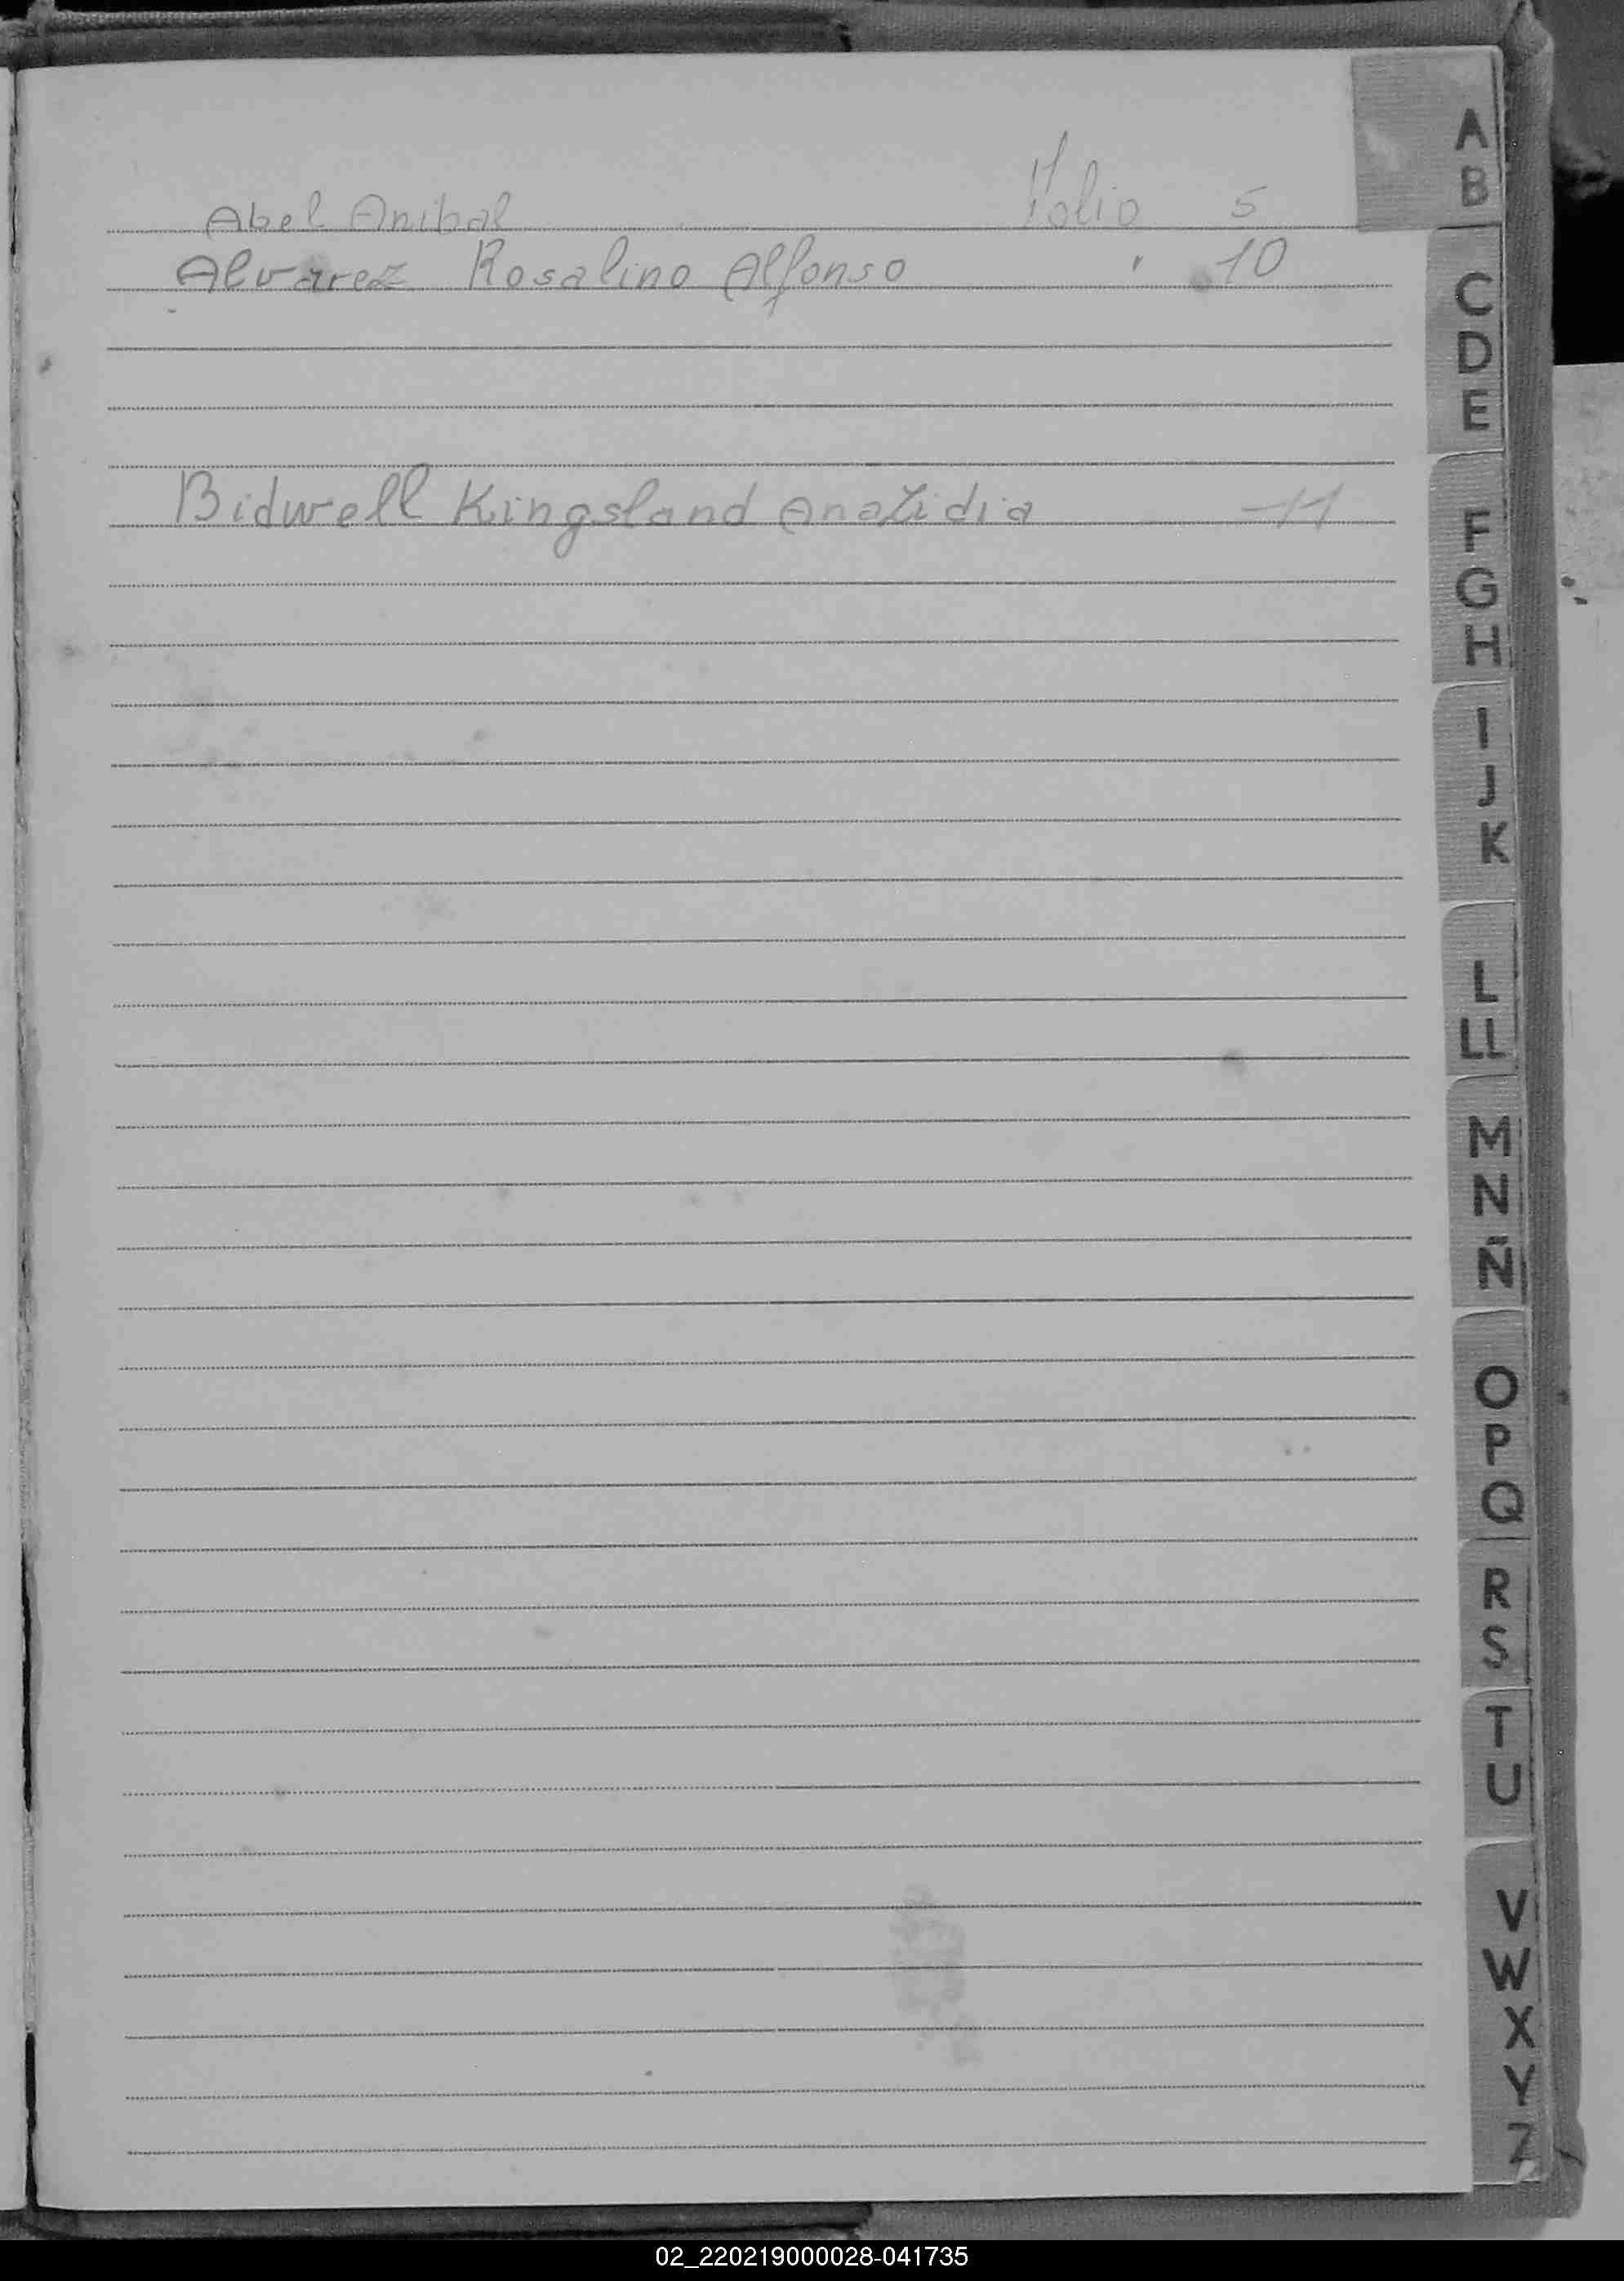 Abel Anibal Folio 5
Alvarez Rosalino Alfonso " 10
Bidwell Kingsland Analidia — 11
A
B
C
D
E
F
G
H
I
J
K
L
LL
M
N
Ñ
O
P
Q
R
S
T
U
V
W
X
Y
Z
02_220219000028-041735